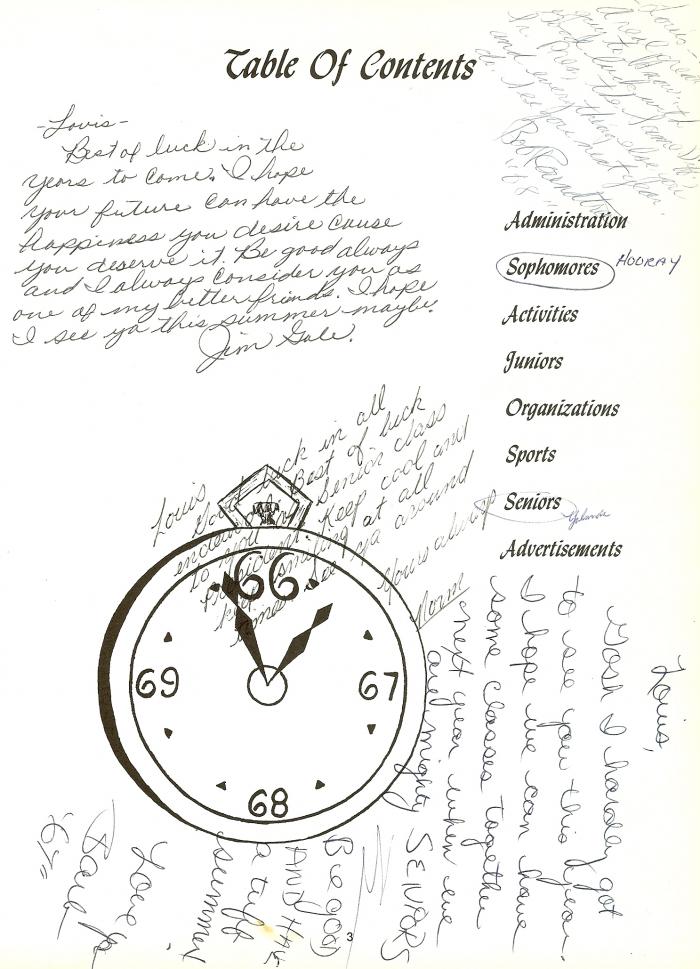 Table Of Contents
-Louis-
Best of luck in the
years to come. I hope
your future can have the
happiness you desire cause
you deserve it. Be good always
and I always consider you as
one of my better friends. I hope
I see ya this summer maybe.
Jim Gale.
good luck
and everything else you
See you next year.
"68"
Administration
Sophomores HOORAY
Activities
Juniors
Organizations
Sports
Seniors
Yolanda
Advertisements
Louis
Good luck in all
endeavors. Best of luck
to you Senior class
President. Keep cool and
keep smiling at all
times. See ya around
Yours always
Norm
66
69
67
68
Louis,
Gosh I harday got
to see you this year.
I hope we can have
some classes together
next year when we
are mighty SENORS
Be good
AND HAVE
a tuff
summer
Love ya
"67"
3